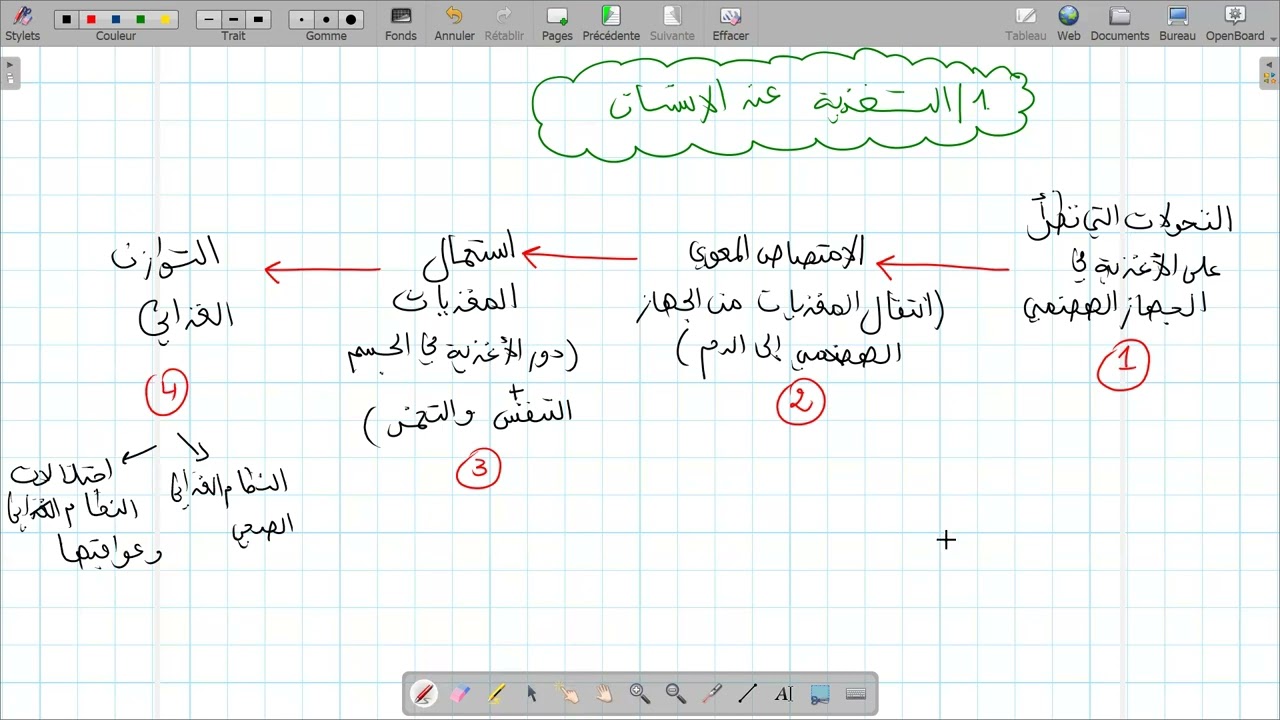 Stylets
Couleur
Trait
Gomme
Fonds
Annuler
Rétablir
Pages
Précédente
Suivante
Effacer
Tableau
Web
Documents
Bureau
OpenBoard
1/ التغذية عند الإنسان
التحولات التي تطرأ
على الأغذية في
الجهاز الهضمي
1
الامتصاص المعوي
(انتقال المغذيات من الجهاز
الهضمي إلى الدم)
2
استعمال
المغذيات
(دور الأغذية في الجسم
+
التنفس والتخمر)
3
التوازن
الغذائي
4
النظام الغذائي
الصحي
اختلالات
النظام الغذائي
وعواقبها
AI